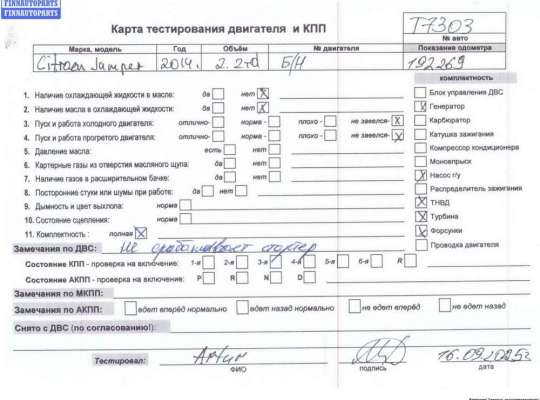 FINNAUTOPARTS
FINNAUTOPARTS
Карта тестирования двигателя и КПП
T-7303
№ авто
Марка, модель Год Объём № двигателя Показания одометра
Citroen Jumper 2014г. 2.2td Б/Н 192269
комплектность
1. Наличие охлаждающей жидкости в масле: да нет X
Блок управления ДВС
2. Наличие масла в охлаждающей жидкости: да нет X
X Генератор
3. Пуск и работа холодного двигателя: отлично- норма - плохо - не завелся- X
Карбюратор
4. Пуск и работа прогретого двигателя: отлично- норма - плохо - не завелся- X
Катушка зажигания
5. Давление масла: есть нет
Компрессор кондиционера
6. Картерные газы из отверстия масляного щупа: да нет
Моновпрыск
7. Наличие газов в расширительном бачке: да нет
X Насос г/у
8. Посторонние стуки или шумы при работе: да нет
Распределитель зажигания
9. Дымность и цвет выхлопа: норма
X ТНВД
10. Состояние сцепления: норма
X Турбина
11. Комплектность : полная X
X Форсунки
Замечания по ДВС: не срабатывает стартер
Проводка двигателя
Состояние КПП - проверка на включение: 1-я 2-я 3-я 4-я 5-я 6-я R
Состояние АКПП - проверка на включение: P R N D
Замечания по МКПП:
Замечания по АКПП: едет вперёд нормально едет назад нормально не едет вперёд не едет назад
Снято с ДВС (по согласованию!):
Тестировал: 16.09.2025г
ФИО подпись дата